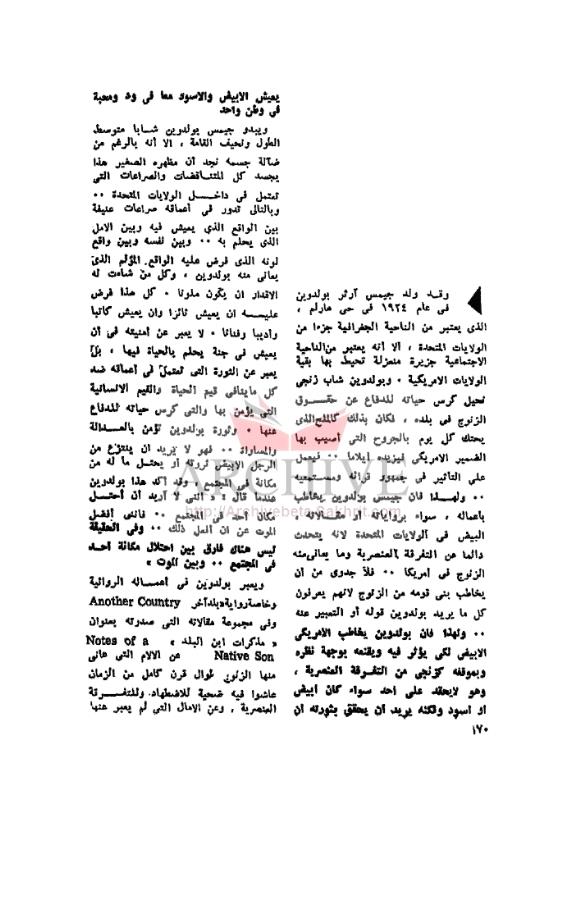 وقد ولد جيمس آرثر بولدوين
فى عام ١٩٢٤ فى حى هارلم ،
الذى يعتبر من الناحية الجغرافية جزءا من
الولايات المتحدة ، الا أنه يعتبر من الناحية
الاجتماعية جزيرة منعزلة تحيط بها بقية
الولايات الامريكية ٠ وبولدوين شاب زنجى
نحيل كرس حياته للدفاع عن حقــوق
الزنوج فى بلده ، فكان بذلك كالملح الذى
يحتك كل يوم بالجروح التى أصيب بها
الضمير الامريكى فيزيده ايلاما ٠٠ فيعمل
على التأثير فى جمهور قرائه ومستمعيه
٠٠ ولهــذا فان جيمس بولدوين يخاطب
بأعماله ، سواء برواياته أو مقــالاته ،
البيض فى الولايات المتحدة لانه يتحدث
دائما عن التفرقة العنصرية وما يعانى منه
الزنوج فى أمريكا ٠٠ فلا جدوى من أن
يخاطب بنى قومه من الزنوج لانهم يعرفون
كل ما يريد بولدوين قوله أو التعبير عنه
٠٠ ولهذا فان بولدوين يخاطب الامريكى
الابيض لكى يؤثر فيه ويقنعه بوجهة نظره
وبموقفه كزنجى من التفرقة العنصرية ،
وهو لايحقد على احد سواء كان أبيض
او اسود ولكنه يريد أن يحقق بثورته ان
يعيش الابيض والاسود معا فى ود ومحبة
فى وطن واحد
ويبدو جيمس بولدوين شــابا متوسط
الطول ونحيف القامة ، الا أنه بالرغم من
ضآلة جسمه نجد أن مظهره الصغير هذا
يجسد كل المتنــاقضات والصراعات التى
تعتمل فى داخــل الولايات المتحدة ٠٠
وبالتالى تدور فى أعماقه صراعات عنيفة
بين الواقع الذى يعيش فيه وبين الامل
الذى يحلم به ٠٠ وبين نفسه وبين واقع
لونه الذى فرض عليه الواقع المؤلم الذى
يعانى منه بولدوين ، وكل من شاءت له
الاقدار ان يكون ملونا ٠ كل هذا فرض
عليــه ان يعيش ثائرا وان يعيش كاتبا
وأديبا وفنانا ٠ لا يعبر عن أمنيته فى أن
يعيش فى جنة يحلم بالحياة فيها ، بل
يعبر عن الثورة التى تعتمل فى أعماقه ضد
كل ماينافى قيم الحياة والقيم الانسانية
التى يؤمن بها والتى كرس حياته للدفاع
عنها ٠ وثورة بولدوين تؤمن بالعــدالة
والمساواة ٠٠ فهو لا يريد ان ينتزع من
الرجل الابيض ثروته أو يحتــل ما له من
مكانة فى المجتمع ، وقد أكد هذا بولدوين
عندما قال : « اننى لا أريد أن أحتــل
مكان أحد فى المجتمع ٠٠ فاننى أفضل
الموت عن ان أفعل ذلك ٠٠ وفى الحقيقة
ليس هناك فارق بين احتلال مكانة أحــد
فى المجتمع ٠٠ وبين الموت »
ويعبر بولدوين فى أعمــاله الروائية
وخاصة رواية « بلد آخر Another Country
وفى مجموعة مقالاته التى صدرت بعنوان
« مذكرات ابن البلد » Notes of a
Native Son عن الآلام التى عانى
منها الزنوج طوال قرن كامل من الزمان
عاشوا فيه ضحية للاضطهاد وللتفــرقة
العنصرية ، وعن الآمال التى لم يعبر عنها
١٧٠
ARCHIVE
http://Archivebeta.Sakhrit.com